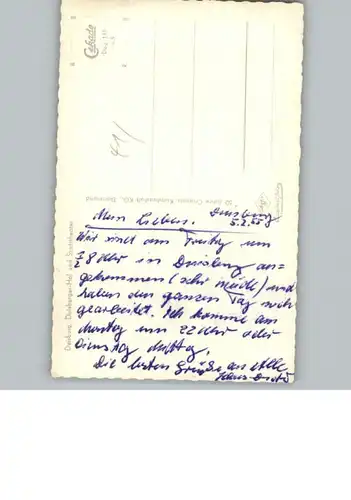 Cekade
Duisburg, Duisburger Hof und Stadttheater
50 Jahre Cramers Kunstanstalt KG., Dortmund
Duisburg
Mein Liebes. 5.2.55
Wir sind am Freitag um
1/2 8 Uhr in Duisburg an-
gekommen (sehr müde) und
haben den ganzen Tag noch
gearbeitet. Ich komme am
Montag um 22 Uhr oder
Dienstag Mittag.
Die besten Grüße an alle
Hans-Dieter